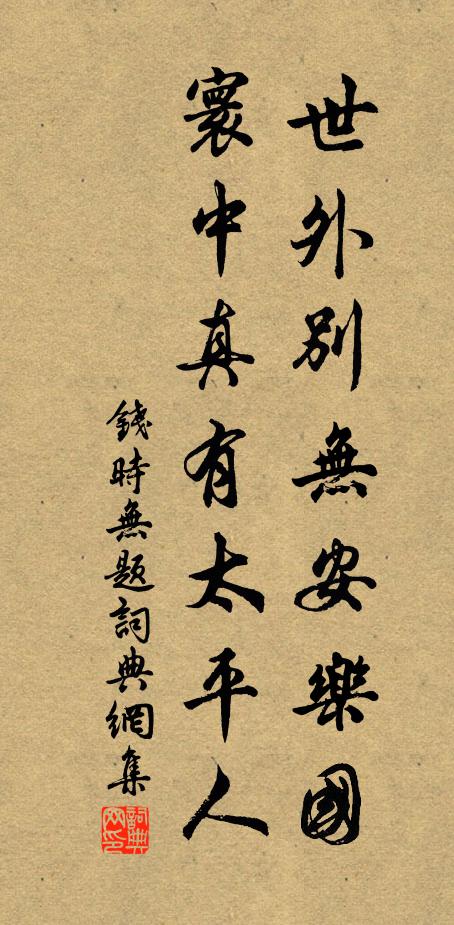 世外別無安樂國
寰中真有太平人
錢時無題詞典網集
詞典網印